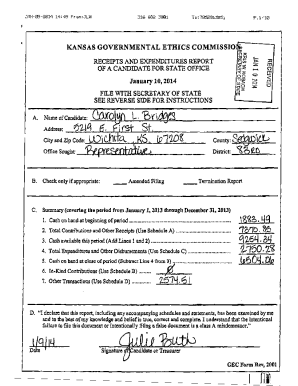 KANSAS GOVERNMENTAL ETHICS COMMISSION
RECEIPTS AND EXPENDITURES REPORT
OF A CANDIDATE FOR STATE OFFICE
January 10, 2014
FILE WITH SECRETARY OF STATE
SEE REVERSE SIDE FOR INSTRUCTIONS
RECEIVED
JAN 10 2014
A. Name of Candidate: Carolyn L. Bridges
Address: 3219 E. First St.
City and Zip Code: Wichita, KS. 67208 County: Sedgwick
Office Sought: Representative District: 83rd
B. Check only if appropriate: Amended Filing Termination Report
C. Summary (covering the period from January 1, 2013 through December 31, 2013)
1. Cash on hand at beginning of period 1883.49
2. Total Contributions and Other Receipts (Use Schedule A) 7370.85
3. Cash available this period (Add Lines 1 and 2) 9254.34
4. Total Expenditures and Other Disbursements (Use Schedule C) 2750.28
5. Cash on hand at close of period (Subtract Line 4 from 3) 6504.06
6. In-Kind Contributions (Use Schedule B) 0
7. Other Transactions (Use Schedule D) 2574.51
D. "I declare that this report, including any accompanying schedules and statements, has been examined by me
and to the best of my knowledge and belief is true, correct and complete. I understand that the intentional
failure to file this document or intentionally filing a false document is a class A misdemeanor."
1/9/14
Date Signature of Candidate or Treasurer
GEC Form Rev, 2001